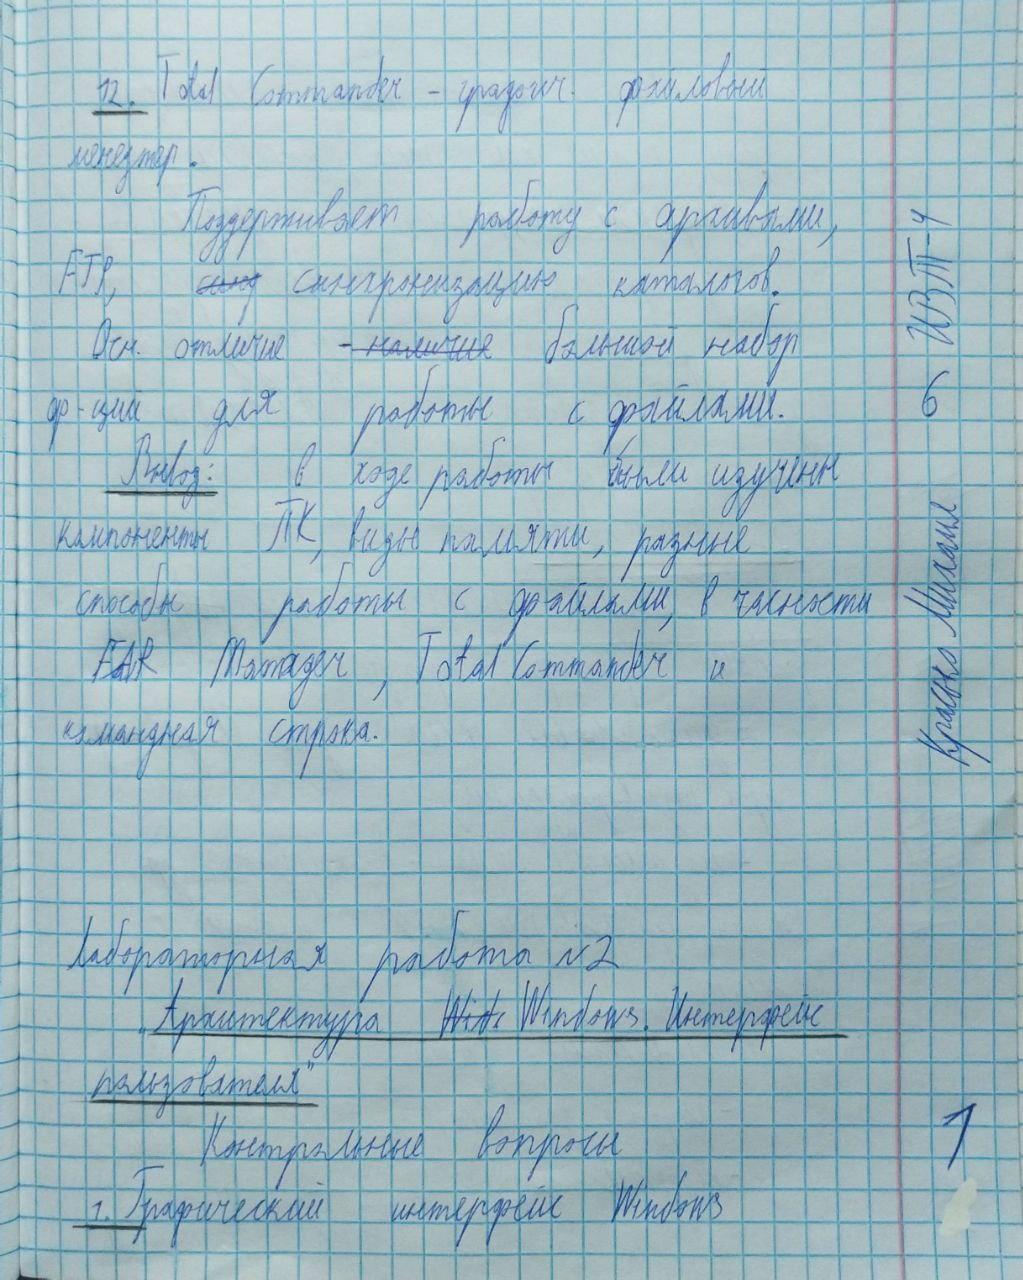 12. Total Commander – графич. файловый
менеджер.
Поддерживает работу с архивами,
FTP, синхронизацию каталогов.
Осн. отличие - наличие большой набор
ф-ций для работы с файлами.
Вывод: в ходе работы были изучены
компоненты ПК, виды памяти, разные
способы работы с файлами, в часности
FAR Manager, Total Commander и
командная строка.
Лабораторная работа №2
„Архитектура Windows. Интерфейс
пользователя"
Контрольные вопросы
1. Графический интерфейс Windows
6 ИВТ-4
Михаил
1